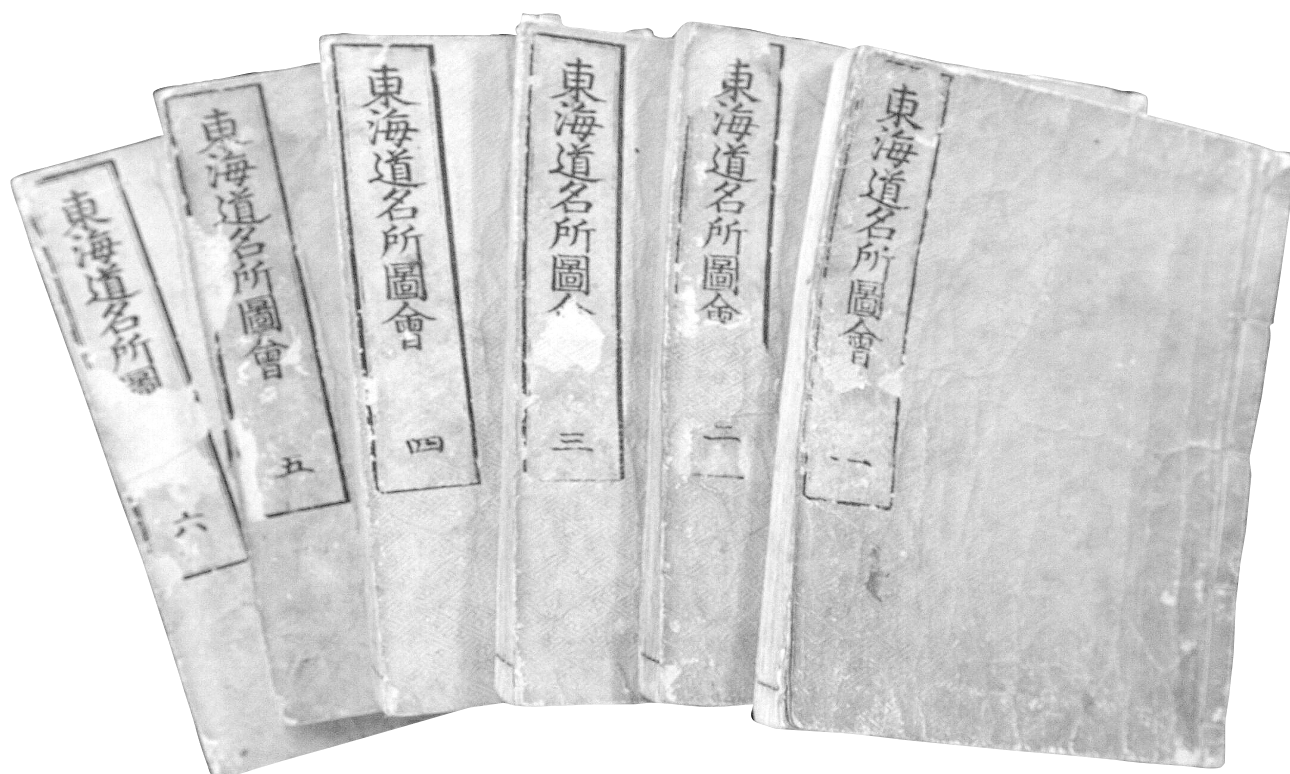 東海道名所圖會 一
東海道名所圖會 二
東海道名所圖 三
東海道名所圖會 四
東海道名所圖會 五
東海道名所圖 六